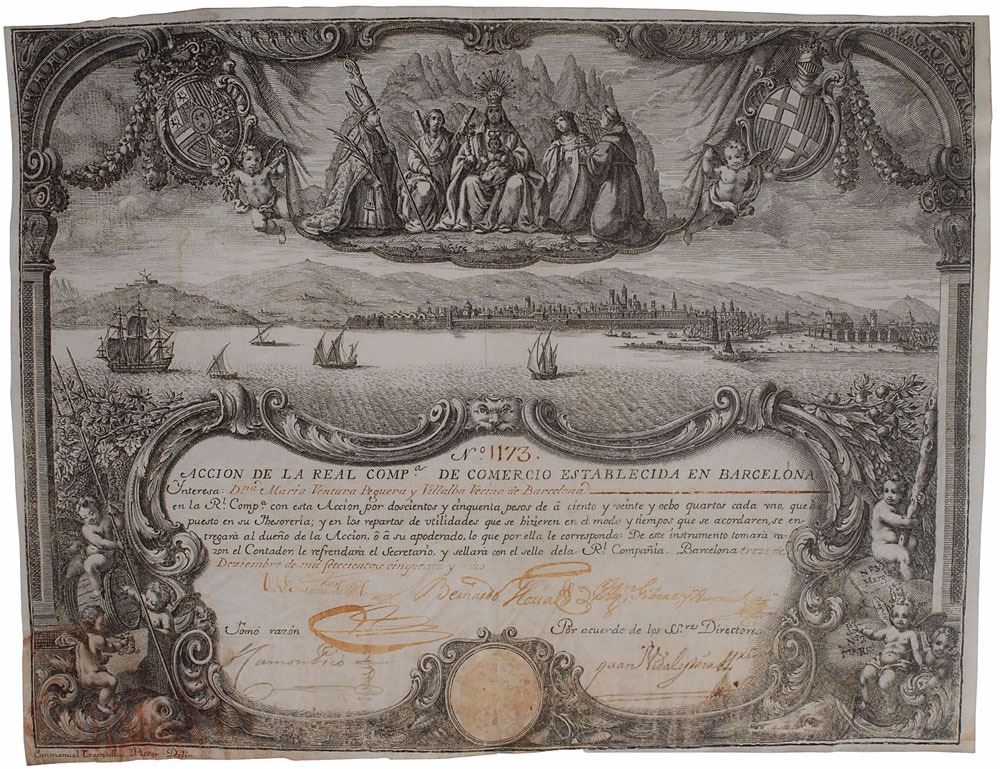 Nº 1173.
ACCION DE LA REAL COMPª DE COMERCIO ESTABLECIDA EN BARCELONA
Ynteresa Dñª Maria Ventura Peguera y Villalba Vecina de Barcelona
en la Rˡ Compª con esta Accion por doscientos y cinquenta pesos de â ciento y veinte y ocho quartos cada vno, que h
puesto en su Thesoreria; y en los repartos de utilidades que se hizieren en el modo y tiempos que se acordaren, se en-
tregarà al dueño de la Accion, ô â su apoderado, lo que por ella le corresponda: De este instrumento tomarà ra-
zon el Contador, le refrendarà el Secretario, y sellarà con el sello dela Rˡ Compañia. Barcelona treze de
Deziembre de mil setecientos cinquenta y
Bernardo
Tomó razón
Por acuerdo de los Sʳᵉˢ Director
Ramon Pico
Juan
Emmanuel Tramulles Pictor Delin.